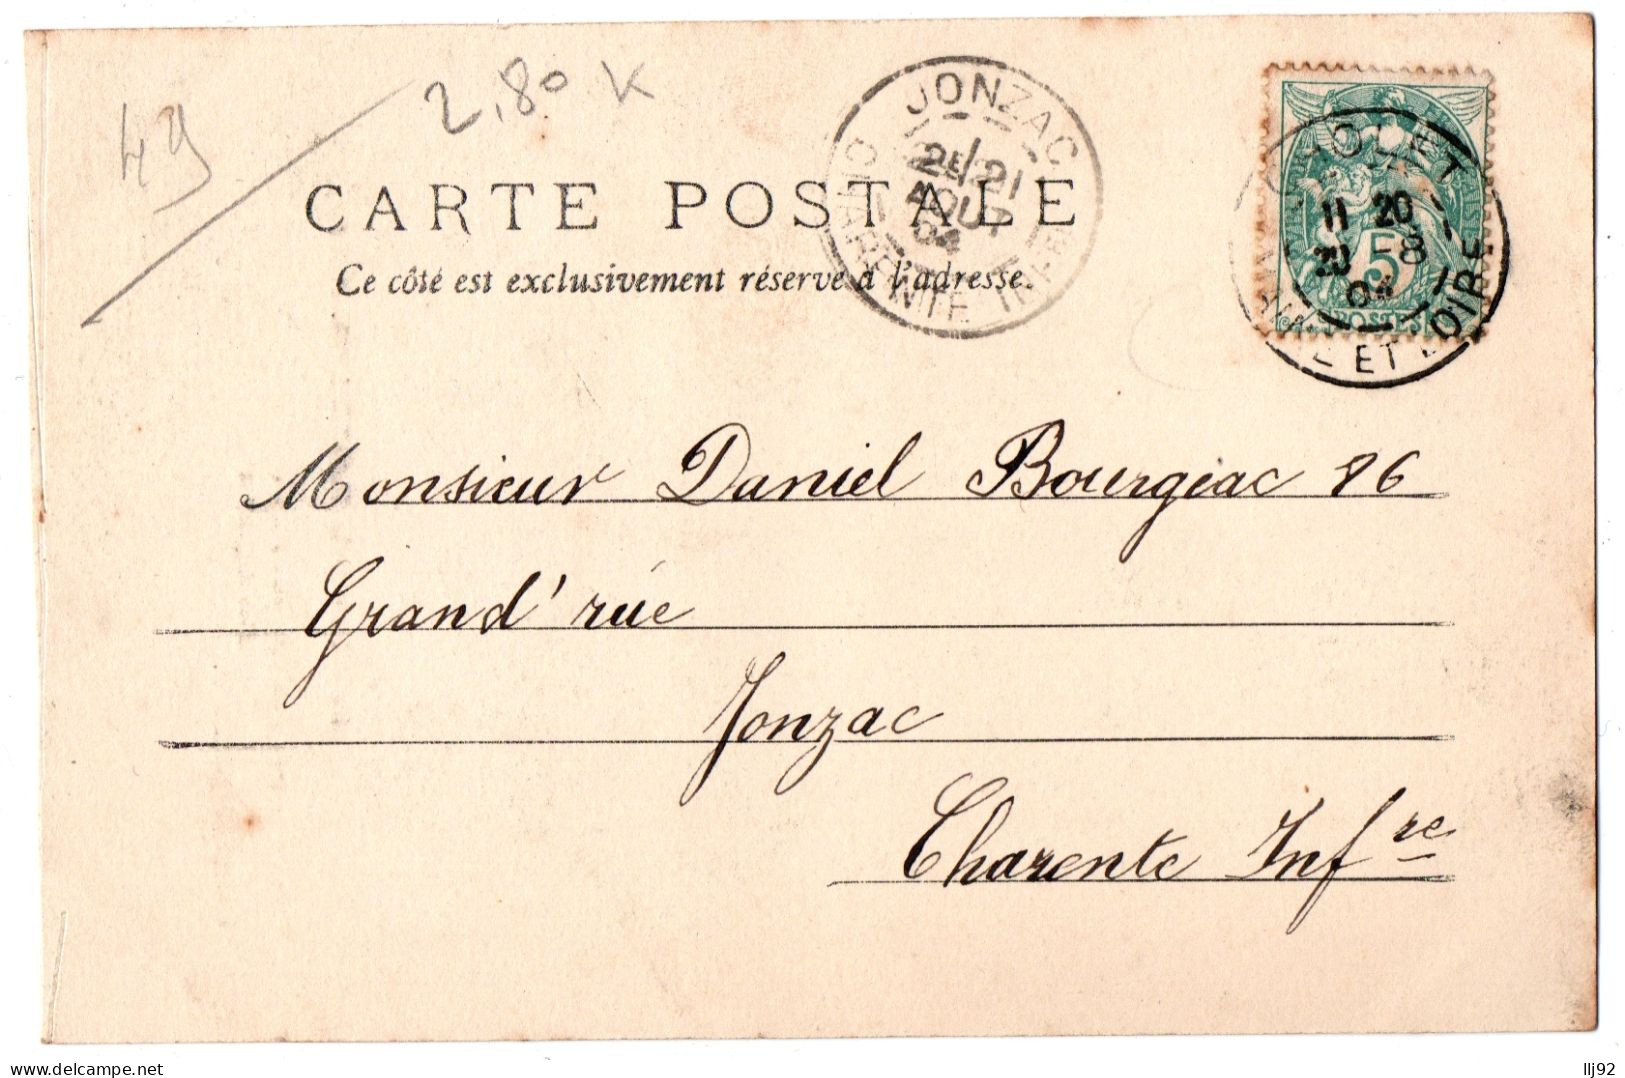 49
2,80 K
JONZAC
2E/21
AOUT
04
CHARENTE INFRE
CHOLET
11 20
20 -8
04
MAINE ET LOIRE
5
POSTES
CARTE POSTALE
Ce côté est exclusivement réservé à l'adresse.
Monsieur Daniel Bourgeac 86
Grand' rüe
Jonzac
Charente Infre
delcampe.net
llj92